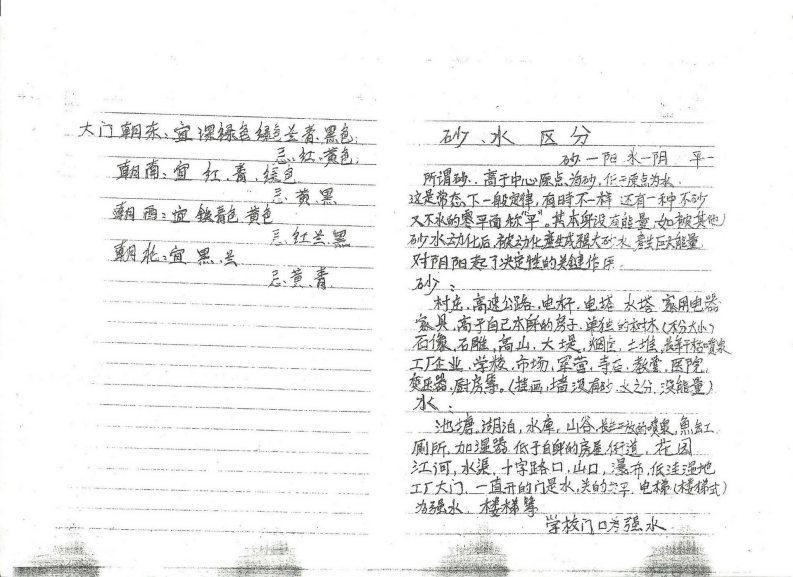 大门朝东：宜深绿色绿色兰青.黑色；
忌.红.黄色；
朝南：宜 红.青 绿色
忌.黄.黑
朝西：宜银青色.黄色
忌.红兰.黑
朝北：宜 黑.兰
忌.黄.青
砂、水 区分
砂—阳 水—阴 平—
所谓砂..高于中心原点为砂，低于原点为水.
这是常态下一般定律，有时不一样 还有一种不砂
又不水的零平面称"平"。其本身没有能量，如被其他
砂水动化后，被动化产生成强大砂水
对阴阳起了决定性的关键作用
砂：
村庄，高速公路，电杆，电塔 水塔 家用电器
家具，高于自己本身的房子，单独的树木(不分大小)
石像，石雕，高山，大堤，烟囱，土堆，
工厂企业，学校，市场，军营，寺右，教堂，医院，
变压器，厨房等。(挂画，墙没有砂.水之分.没能量)
水：
池塘，湖泊，水库，山谷，的喷泉，鱼缸
厕所，加湿器 低于自身的房屋，街道，花园
江河，水渠，十字路口，山口，瀑布，低洼湿地
工厂大门，一直开的门是水，关的为平，电梯(楼梯式)
为强水. 楼梯等
学校门口为强水